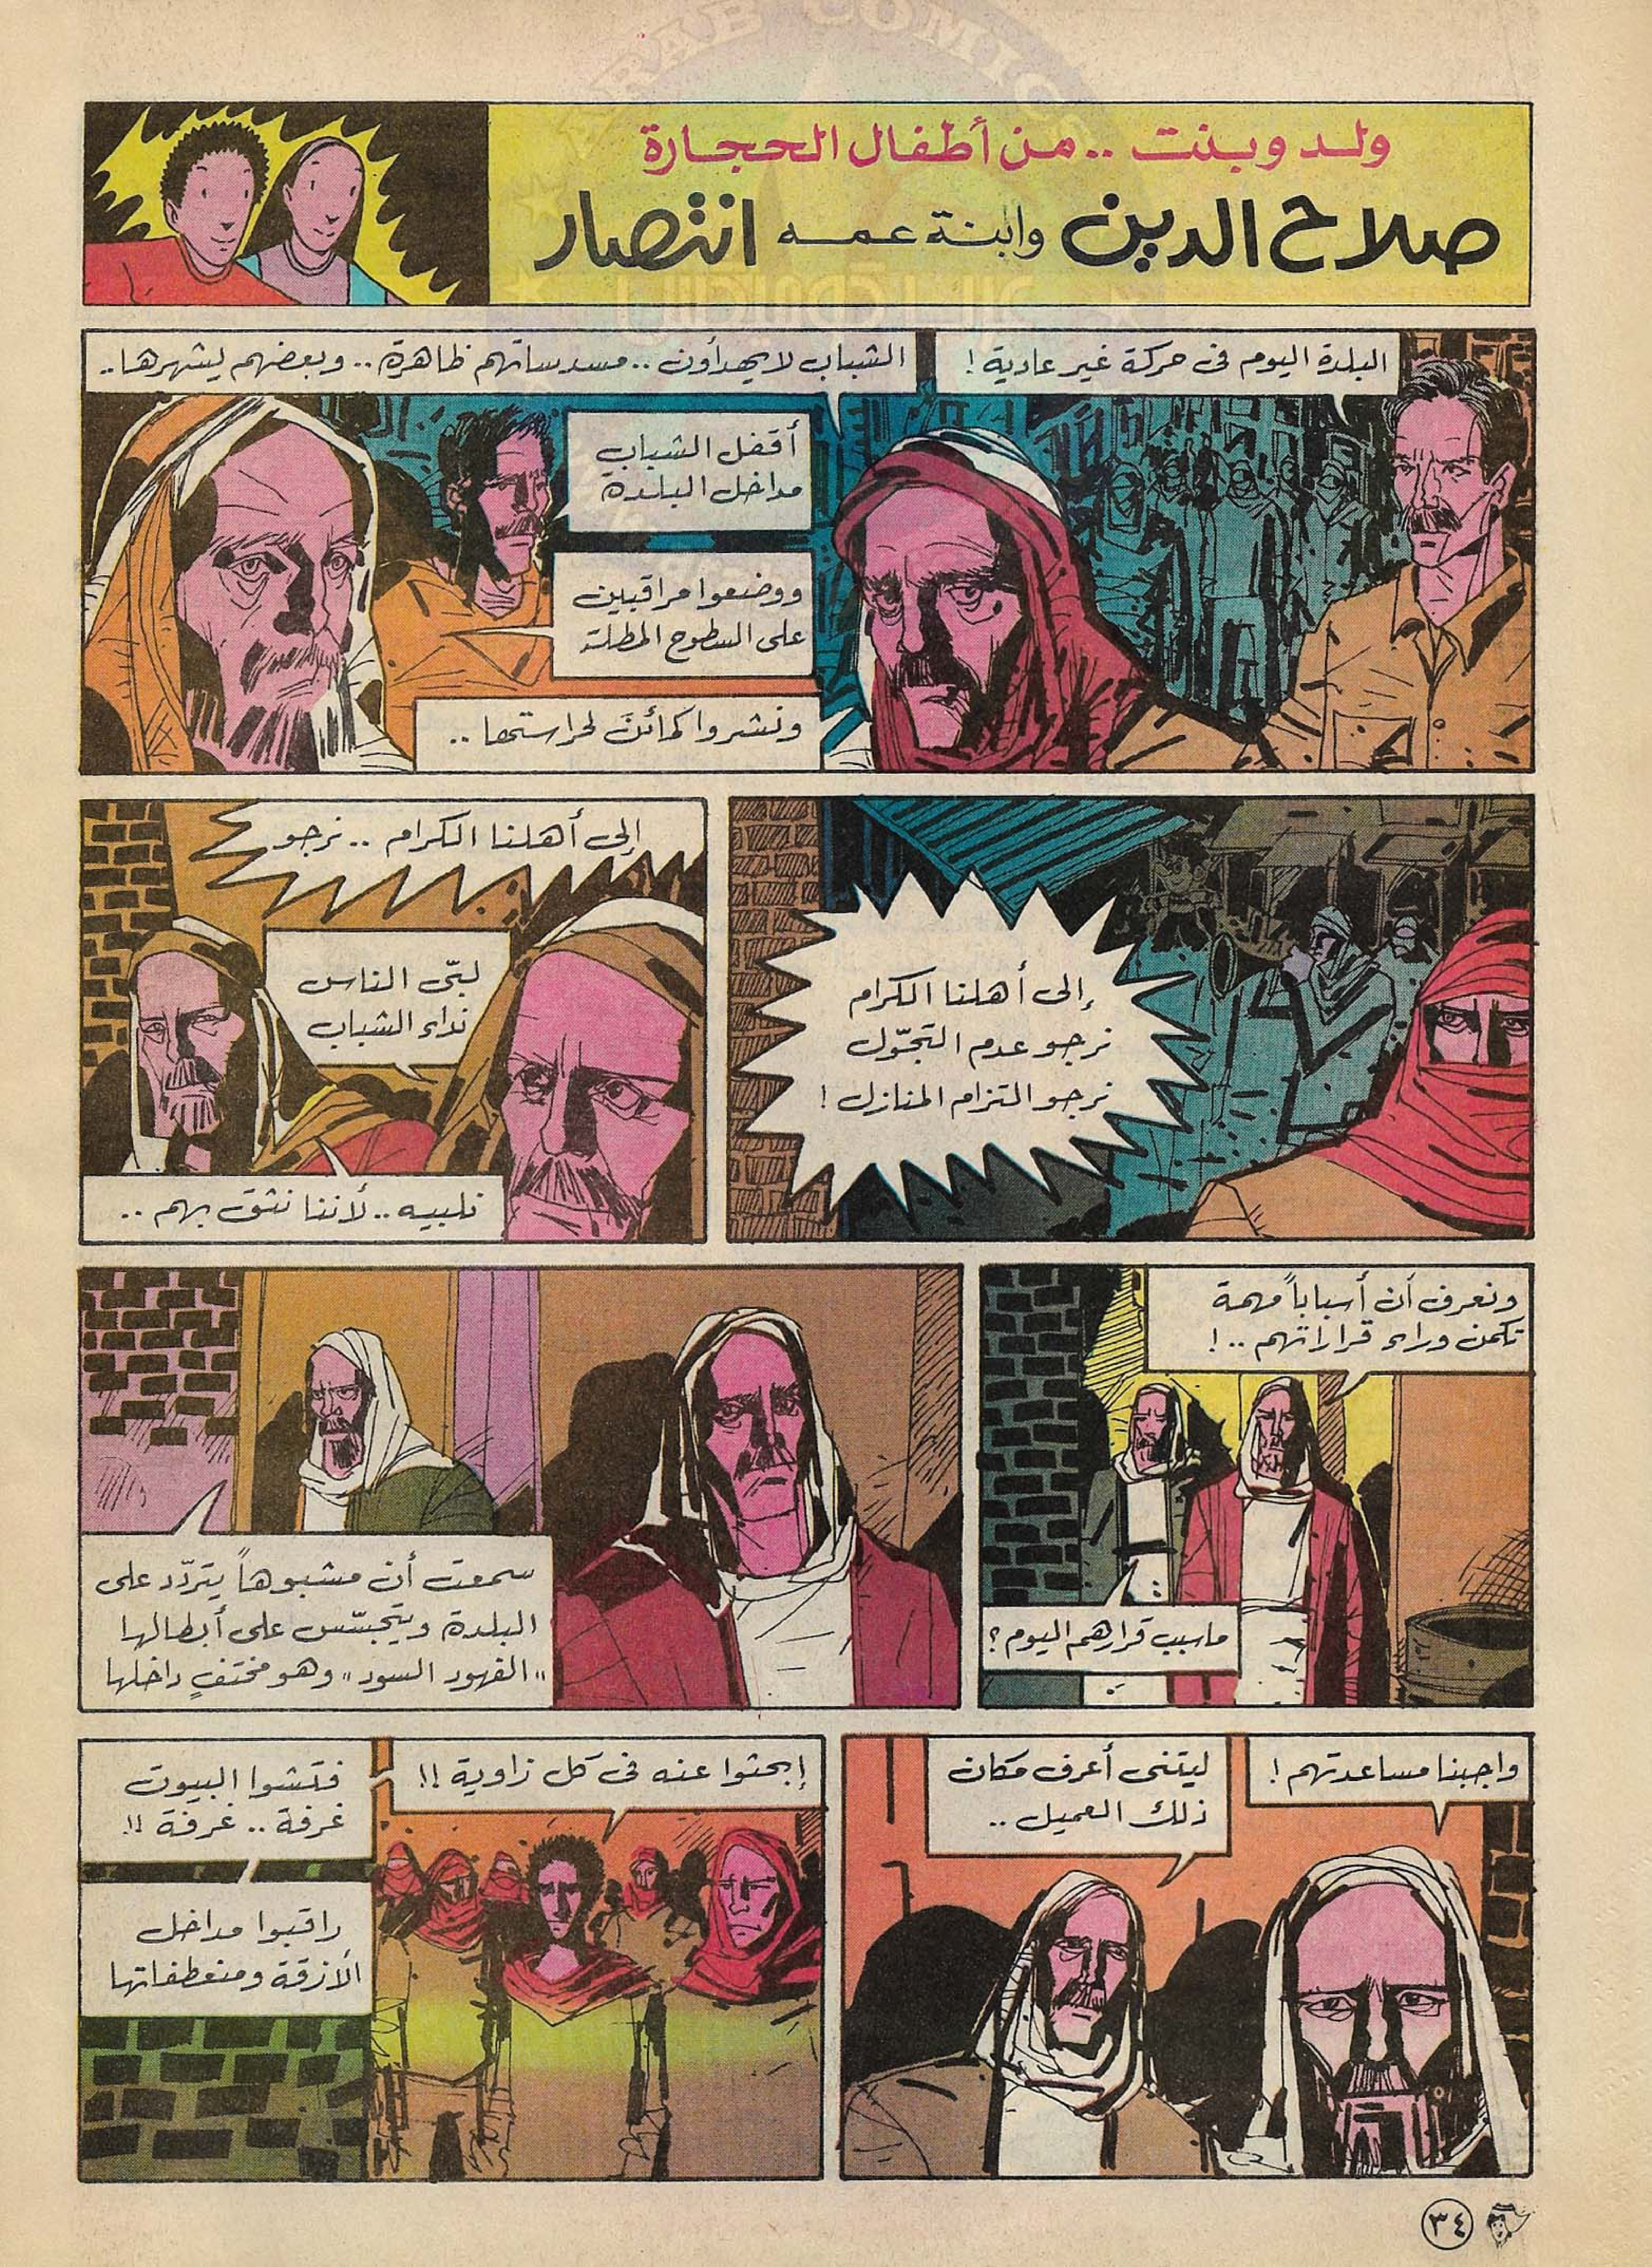 ARAB COMICS
ولد وبنت .. من أطفال الحجارة
صلاح الدين وابنة عمه انتصار
البلدة اليوم فى حركة غير عادية !
الشباب لا يهدأون .. مسدساتهم ظاهرة .. وبعضهم يشهرها ..
أقفل الشباب
مداخل البلدة
ووضعوا مراقبين
على السطوح المطلة
ونشروا كمائنَ لحراستها ..
إلى أهلنا الكرام
نرجو عدم التجوّل
نرجو التزام المنازل !
إلى أهلنا الكرام .. نرجو
لبّى الناس
نداء الشباب
نلبيه .. لأننا نثق بهم ..
ونعرف أن أسباباً مهمة
تكمن وراء قراراتهم .. !
ما سبب قرارهم اليوم ؟
سمعت أن مشبوهاً يتردّد على
البلدة ويتجسّس على أبطالها
"الفهود السود" وهو مختفٍ داخلها
واجبنا مساعدتهم !
ليتنى أعرف مكان
ذلك العميل ..
إبحثوا عنه فى كل زاوية !!
فتشوا البيوت
غرفة .. غرفة !!
راقبوا مداخل
الأزقة ومنعطفاتها
٣٤